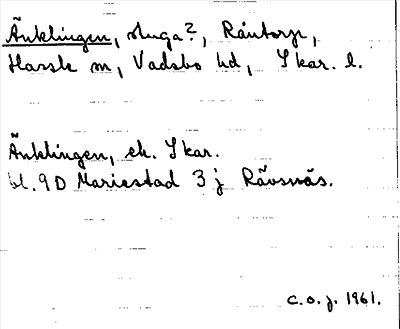 Änklingen, stuga?, Råntorp,
Hassle sn, Vadsbo hd, Skar. l.
Änklingen, ek. Skar.
bl. 9D Mariestad 3 j Rävsnäs.
C.O.J. 1961.